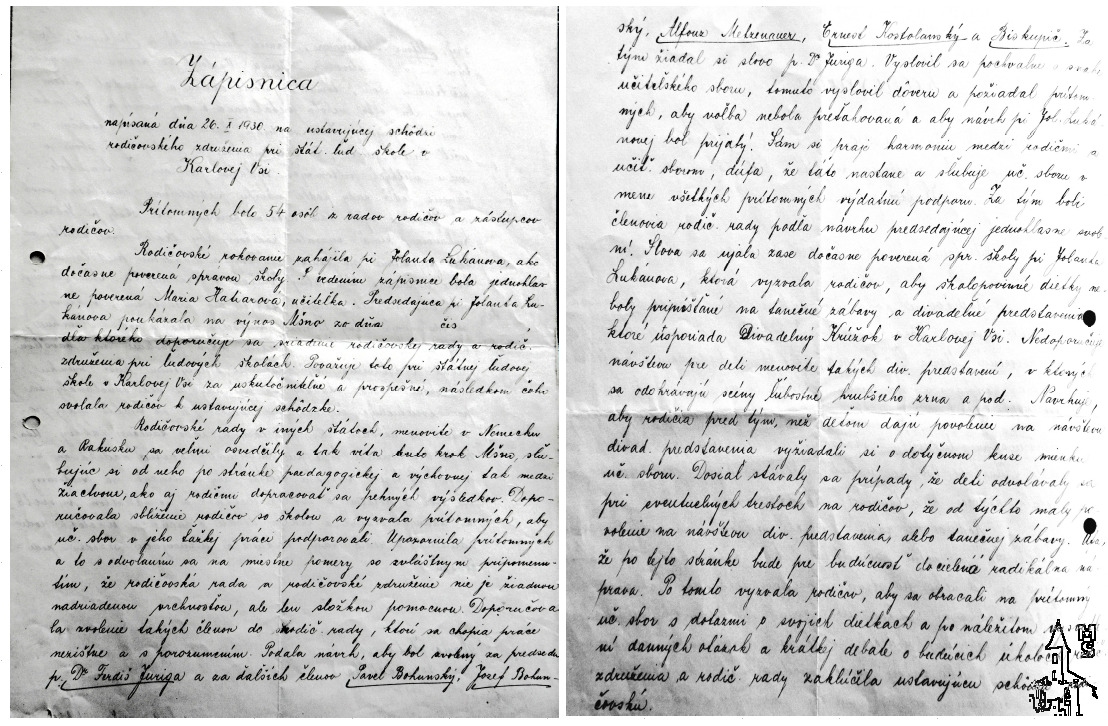 Zápisnica
napísaná dňa 26. X 1930 na ustavujúcej schôdzi
rodičovského združenia pri štát. ľud. škole v
Karlovej Vsi.
Prítomných bolo 54 osôb z radov rodičov a zástupcov
rodičov.
Rodičovské rokovanie zahájila pí Jolanta Lukanova, ako
dočasne poverená spravou školy. S vedením zápisnice bola jednohlas-
ne poverená Maria Hatiarova, učitelka. Predsedajúca pí Jolanta Lu-
kánova poukázala na výnos Mšno zo dňa čis
dľa ktorého doporučuje sa sriadenie rodičovskej rady a rodič.
združenia pri ľudových školách. Považuje toto pri štátnej ľudovej
škole v Karlovej Vsi za uskutočnitelné a prospešné, následkom čoho
svolala rodičov k ustavujúcej schôdzke.
Rodičovské rady v iných štátoch, menovite v Nemecku
a Rakúsku sa veľmi osvedčily a tak víta tento krok Mšno, slu-
bujúc si od neho po stránke paedagogickej a výchovnej tak medzi
žiactvom, ako aj rodičmi dopracovať sa pekných výsledkov. Dopo-
ručovala sblíženie rodičov so školou a vyzvala prítomných, aby
uč. sbor v jeho ťažkej práce podporovali. Upozornila prítomných
a to s odvolaním sa na miestne pomery so zvláštnym pripomenu-
tím, že rodičovská rada a rodičovské združenie nie je žiadnou
nadriadenou vrchnosťou, ale len složkou pomocnou. Doporučova
la zvolenie takých členov do rodič. rady, ktorí sa chopia práce
nezištne a s porozumením. Podala návrh, aby bol zvolený za predsedu
p. Dr Ferdiš Juriga a za ďalších členov Pavel Bohunský, Jozef Bohun-
ský, Alfonz Metzenauer, Ernest Kostolanský a Biskupič. Za
tým žiadal si slovo p. Dr Juriga. Vyslovil sa pochvalne o
učiteľského sboru, tomuto vyslovil dôveru a požiadal prítom-
ných, aby voľba nebola preťahovaná a aby návrh pí Jol. Luká
novej bol prijatý. Sám si praji harmoniu medzi rodičmi a
učit. sborom, dúfa, že táto nastane a slubuje uč. sboru v
mene všetkých prítomných výdatnú podporu. Za tým boli
členovia rodič. rady podľa návrhu predsedajúcej jednohlasne
ní. Slova sa ujala zase dočasne poverená spr. školy pí Jolanta
Lukanova, ktorá vyzvala rodičov, aby školopovinné dietky ne-
boly pripúšťané na tanečné zábavy a divadelné predstavenia
ktoré usporiada Divadelny Krúžok v Karlovej Vsi. Nedoporučuje
návštevu pre deti menovite takých div. predstavení, v ktorých
sa odohrávajú scény ľubostné hrubšieho zrna a pod. Navrhuje,
aby rodičia pred tým, než deťom dajú povolenie na návštevu
divad. predstavenia vyžiadali si o dotyčnom kuse mienku
uč. sboru. Dosiaľ stávaly sa prípady, že deti odvolávaly sa
pri eventuelných trestoch na rodičov, že od týchto maly po
volenie na návštevu div. predstavenia, alebo tanečnej zábavy.
že po tejto stránke bude pre budúcnosť docielená radikálna ná-
prava. Po tomto vyzvala rodičov, aby sa obracali na prítomný
uč. sbor s dotazmi o svojich dietkach a po náležitom
ní daných otázok a krátkej debate o budúcich úkoloch
združenia a rodič. rady zaklúčila ustavujúcu
čovskú.